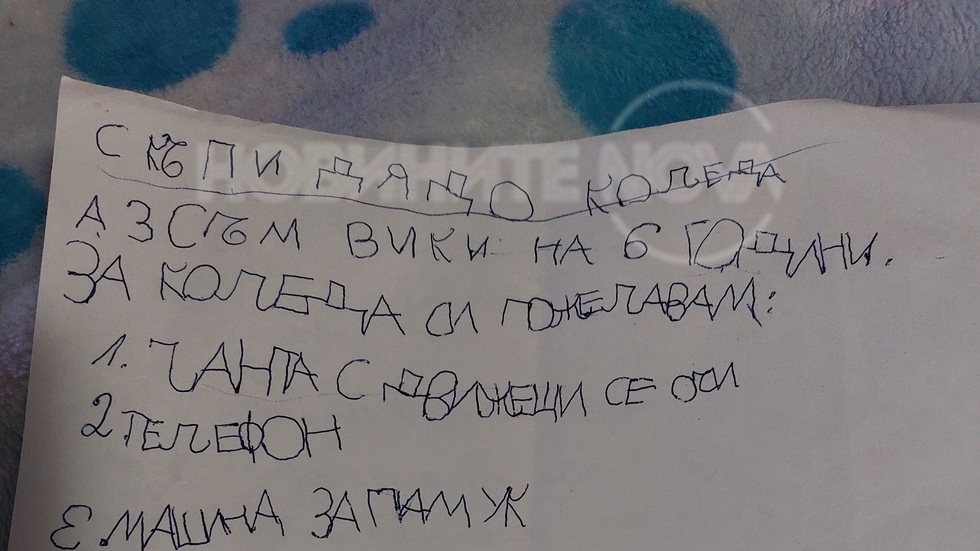 СКЪПИ ДЯДО КОЛЕДА
АЗ СЪМ ВИКИ НА 6 ГОДИНИ.
ЗА КОЛЕДА СИ ПОЖЕЛАВАМ:
1. ЧАНТА С ДВИЖЕЩИ СЕ ОЧИ
2 ТЕЛЕФОН
Е. МАШИНА ЗА ПАМ Ж
НОВИНИТЕ NOVA